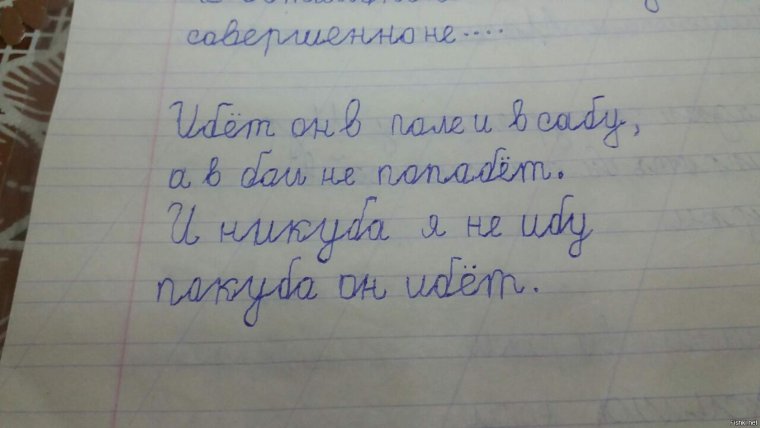 совершенно не....
Ибёт он в поле и в сабу,
а в бом не попабёт.
И никуба я не ибу
покуба он ибёт.
Fishki.net